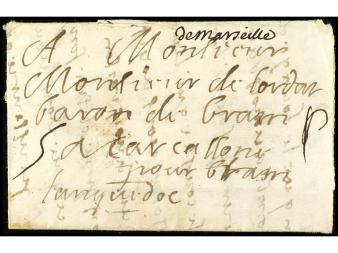 de Marseille
A Monsieur
Monsieur de Lordat
baron de bram
5 a Carcassonne
pour bram
languedoc